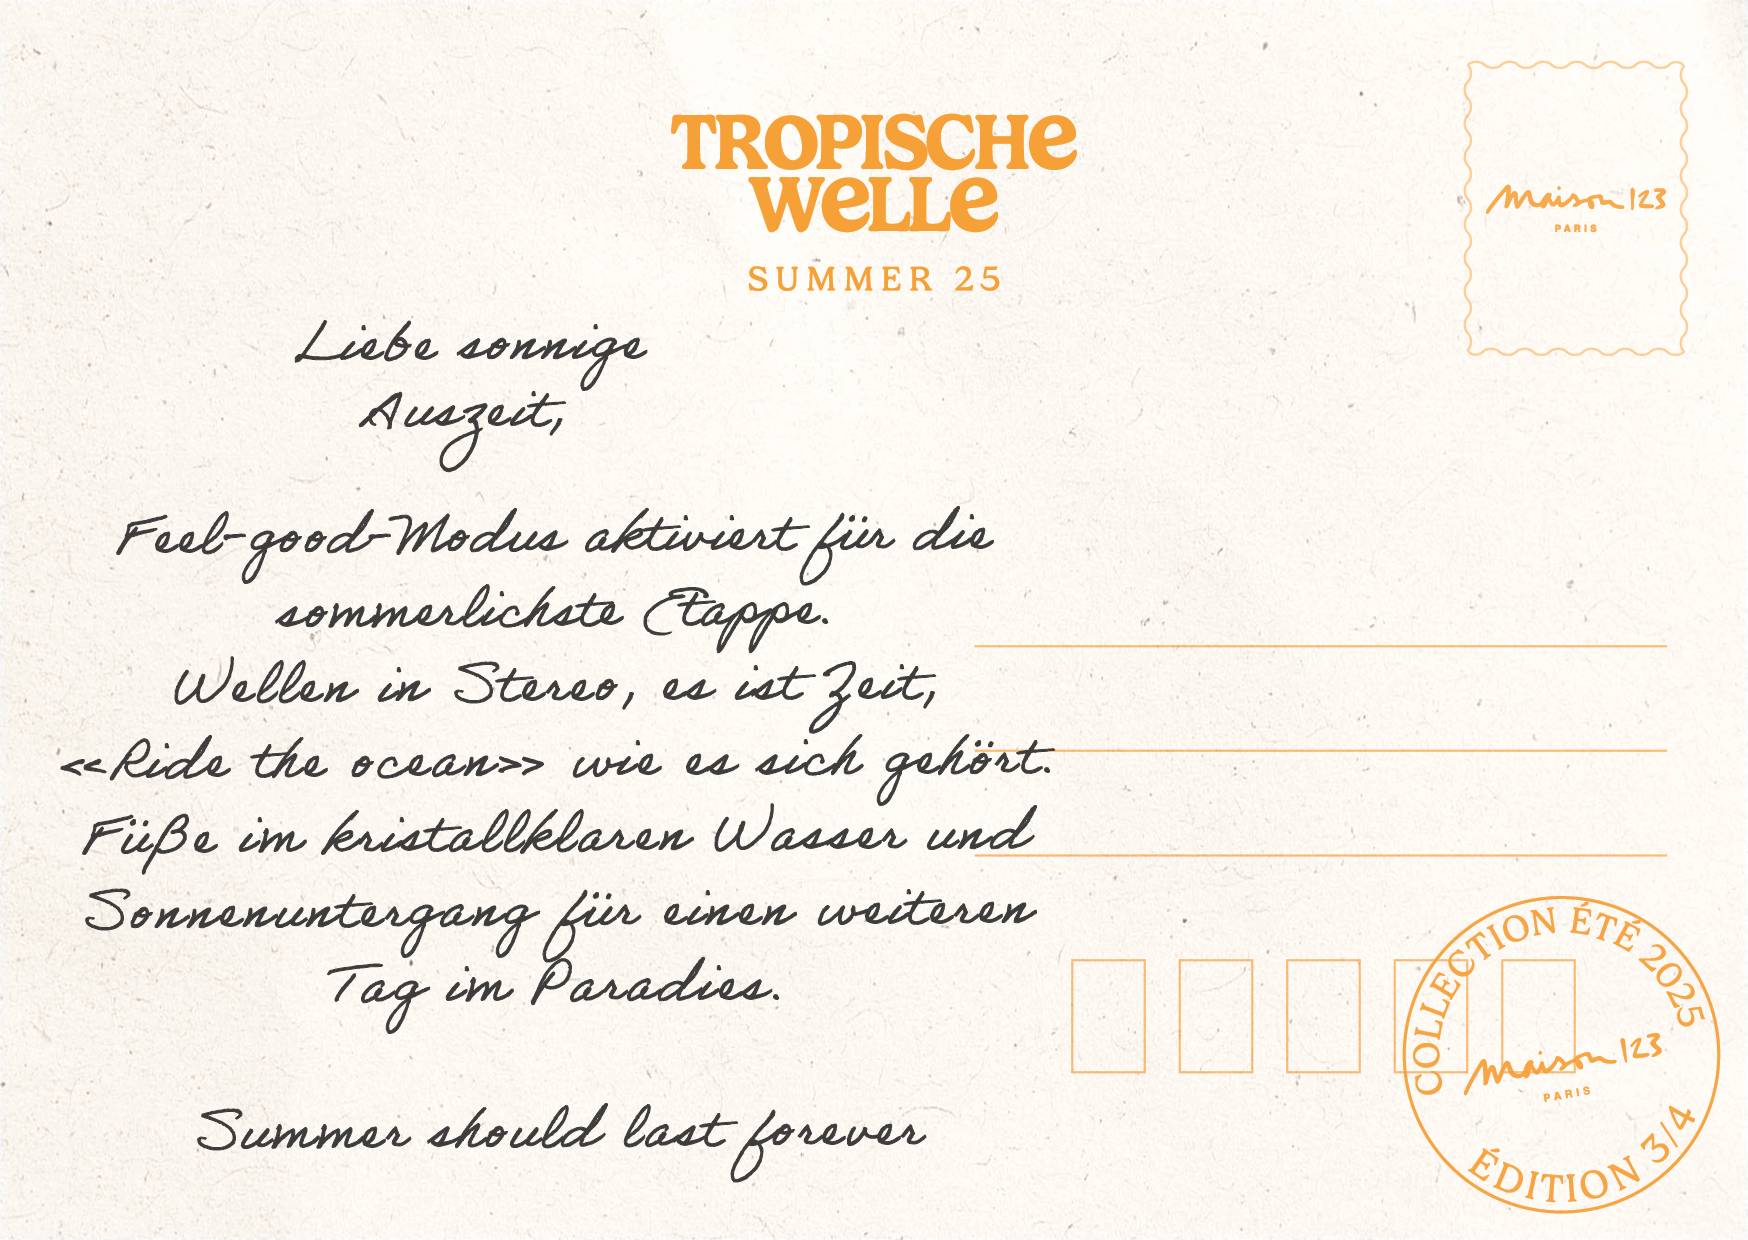 TROPISCHe
WeLLe
SUMMER 25
Maison 123
PARIS
Liebe sonnige
Auszeit,
Feel-good-Modus aktiviert für die
sommerlichste Etappe.
Wellen in Stereo, es ist Zeit,
<<Ride the ocean>> wie es sich gehört.
Füße im kristallklaren Wasser und
Sonnenuntergang für einen weiteren
Tag im Paradies.
Summer should last forever
COLLECTION ÉTÉ 2025
Maison 123
PARIS
ÉDITION 3/4